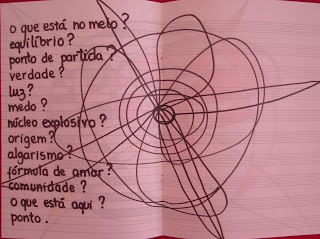 o que está no meio?
equilíbrio?
ponto de partida?
verdade?
luz?
medo?
núcleo explosivo?
origem?
algarismo?
fórmula de amar?
comunidade?
o que está aqui?
ponto.